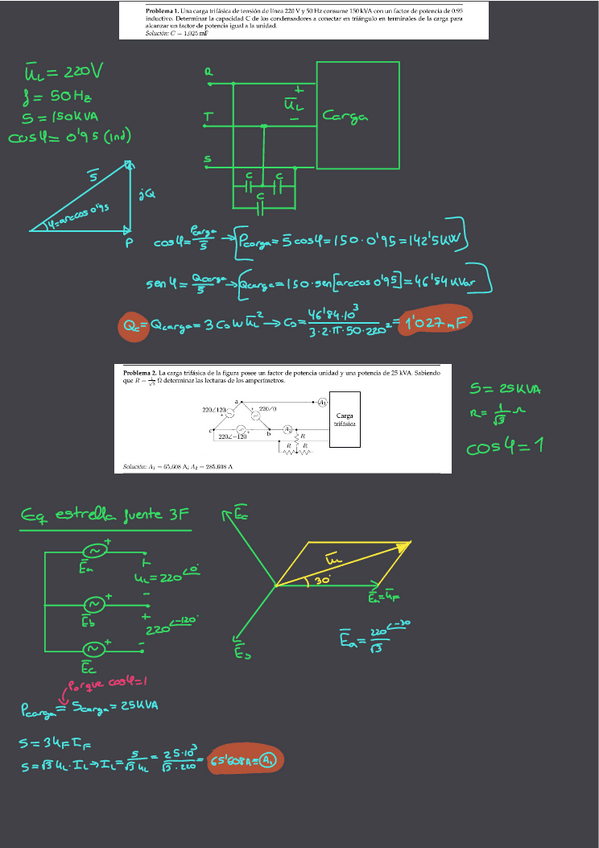 Problema 1. Una carga trifásica de tensión de línea 220 V y 50 Hz consume 150 kVA con un factor de potencia de 0.95
inductivo. Determinar la capacidad C de los condensadores a conectar en triángulo en terminales de la carga para
alcanzar un factor de potencia igual a la unidad.
Solución: C = 1,025 mF
U̅L = 220V
f = 50Hz
S = 150KVA
cosφ = 0'95 (ind)
R
T
S
+
U̅L
-
Carga
C
C
C
S̅
φ=arccos 0'95
jQ
P
cosφ = Pcarga/S̅ → [Pcarga = S̅ cosφ = 150·0'95 = 142'5KW]
senφ = Qcarga/S̅ → [Qcarga = 150·sen[arccos 0'95] = 46'84 KVar]
Qc = Qcarga = 3 C₀ W U̅L² → C₀ = 46'84·10³/3·2·π·50·220² = 1'027 mF
Problema 2. La carga trifásica de la figura posee un factor de potencia unidad y una potencia de 25 kVA. Sabiendo
que R = 1/√3 Ω determinar las lecturas de los amperímetros.
a
A1
220∠120
220/0
c
b
A2
220∠−120
R
R
R
Carga
trifásica
Solución: A1 = 65,608 A, A2 = 285,608 A
S = 25KVA
R = 1/√3 Ω
cosφ = 1
Eq estrella fuente 3F
+
E̅a
+
UL = 220∠0°
-
+
E̅b
+
220∠-120°
-
+
E̅c
E̅c
U̅L
30°
E̅a = U̅F
E̅b
E̅a = 220∠-30/√3
Porque cosφ=1
Pcarga = Scarga = 25KVA
S = 3UF IF
S = √3 UL · IL → IL = S/√3 UL = 25·10³/√3·220 = 65'608A = A1